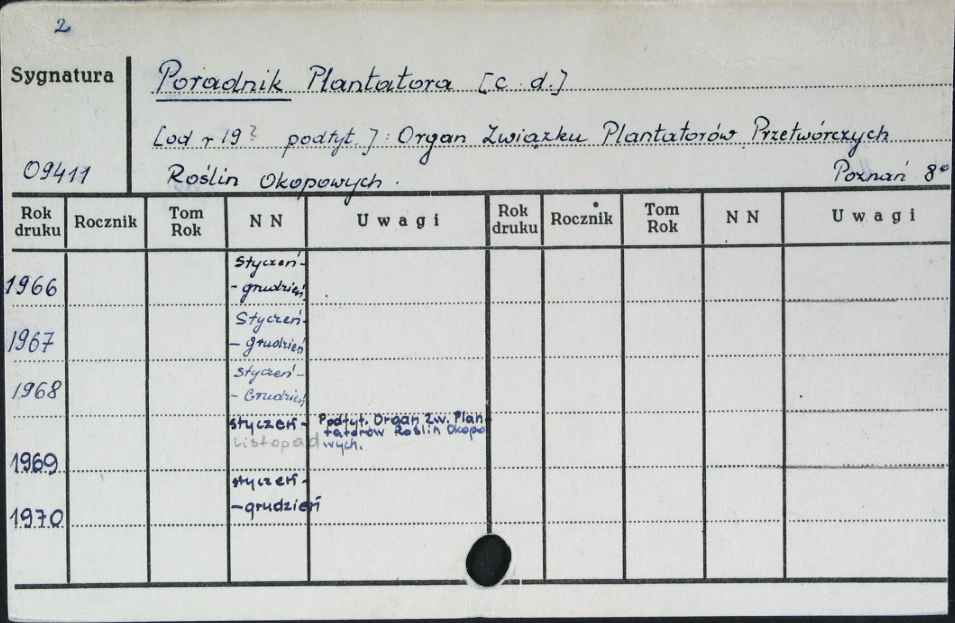 2
Sygnatura
Poradnik Plantatora [c. d.]
[od r 19? podtyt.]: Organ Związku Plantatorów Przetwórczych
09411
Roślin Okopowych.
Poznań 8°
Rok druku Rocznik Tom Rok N N Uwagi Rok druku Rocznik Tom Rok N N Uwagi
1966 Styczeń-
- grudzień
1967 Styczeń-
- grudzień
1968 Styczeń-
- Grudzień
1969 styczeń- Podtyt. Organ Zw. Plan-
listopad tatorów Roślin Okopo
wych.
1970 styczeń-
-grudzień